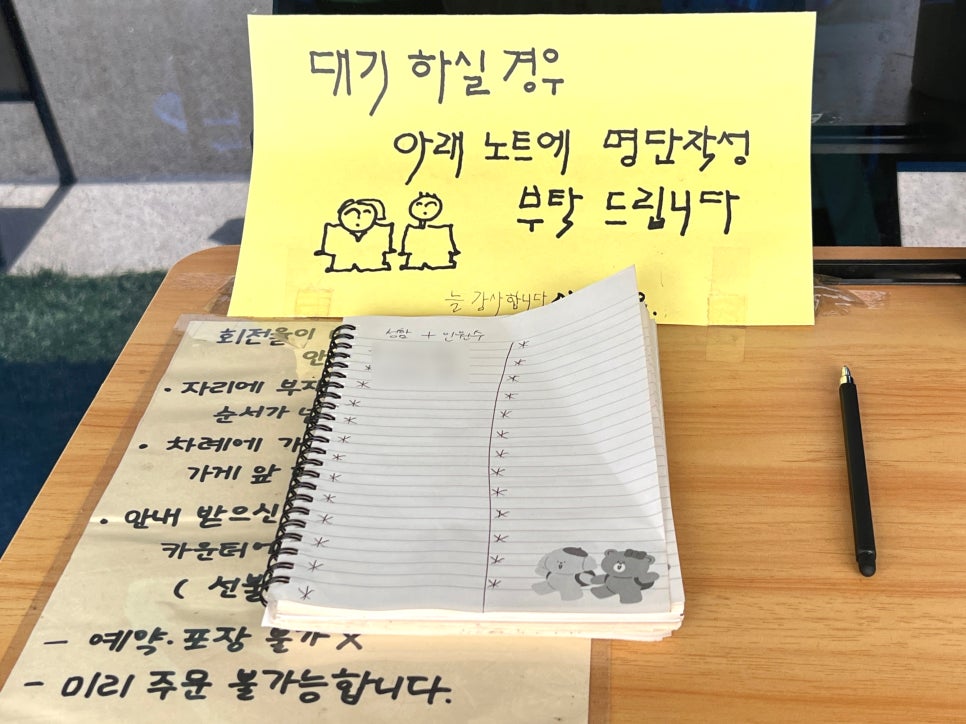 대기 하실 경우
아래 노트에 명단작성
부탁 드립니다
늘 감사합니다
성함 + 인원수
회전율이
안
· 자리에 부재
순서가 넘
· 차례에
가게 앞
· 안내 받으신
카운터에
( 선불
- 예약·포장 불가 X
- 미리 주문 불가능합니다.